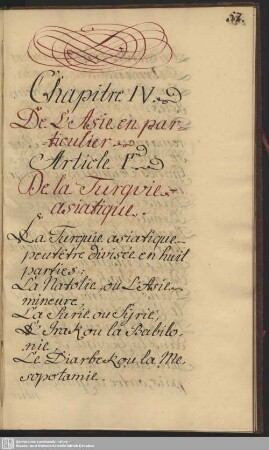 57.
Chapitre IV
De L'Asie en par-
ticulier
Article 1r
De la Turquie
asiatique.
La Turquie asiatique
peut être divisée en huit
parties:
La Natolie, ou L'Asie
mineure,
La Surie ou Syrie,
L'Irak ou la Babilo
nie.
Le Diarbek ou la Me
sopotamie.